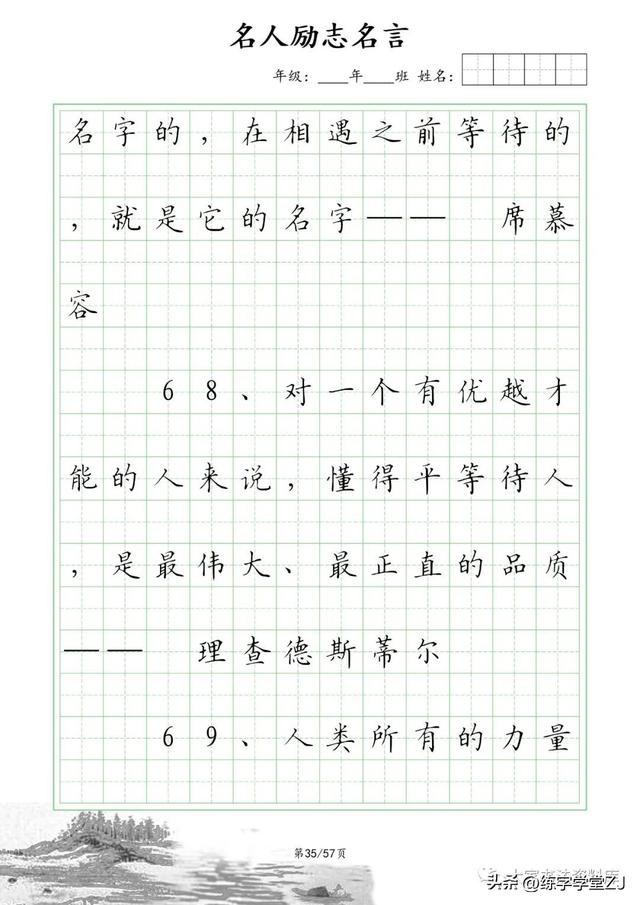 名人励志名言
年级：____年____班 姓名：
名字的，在相遇之前等待的
，就是它的名字—— 席慕
容
68、对一个有优越才
能的人来说，懂得平等待人
，是最伟大、最正直的品质
—— 理查德斯蒂尔
69、人类所有的力量
第35/57页
头条@练字学堂ZJ